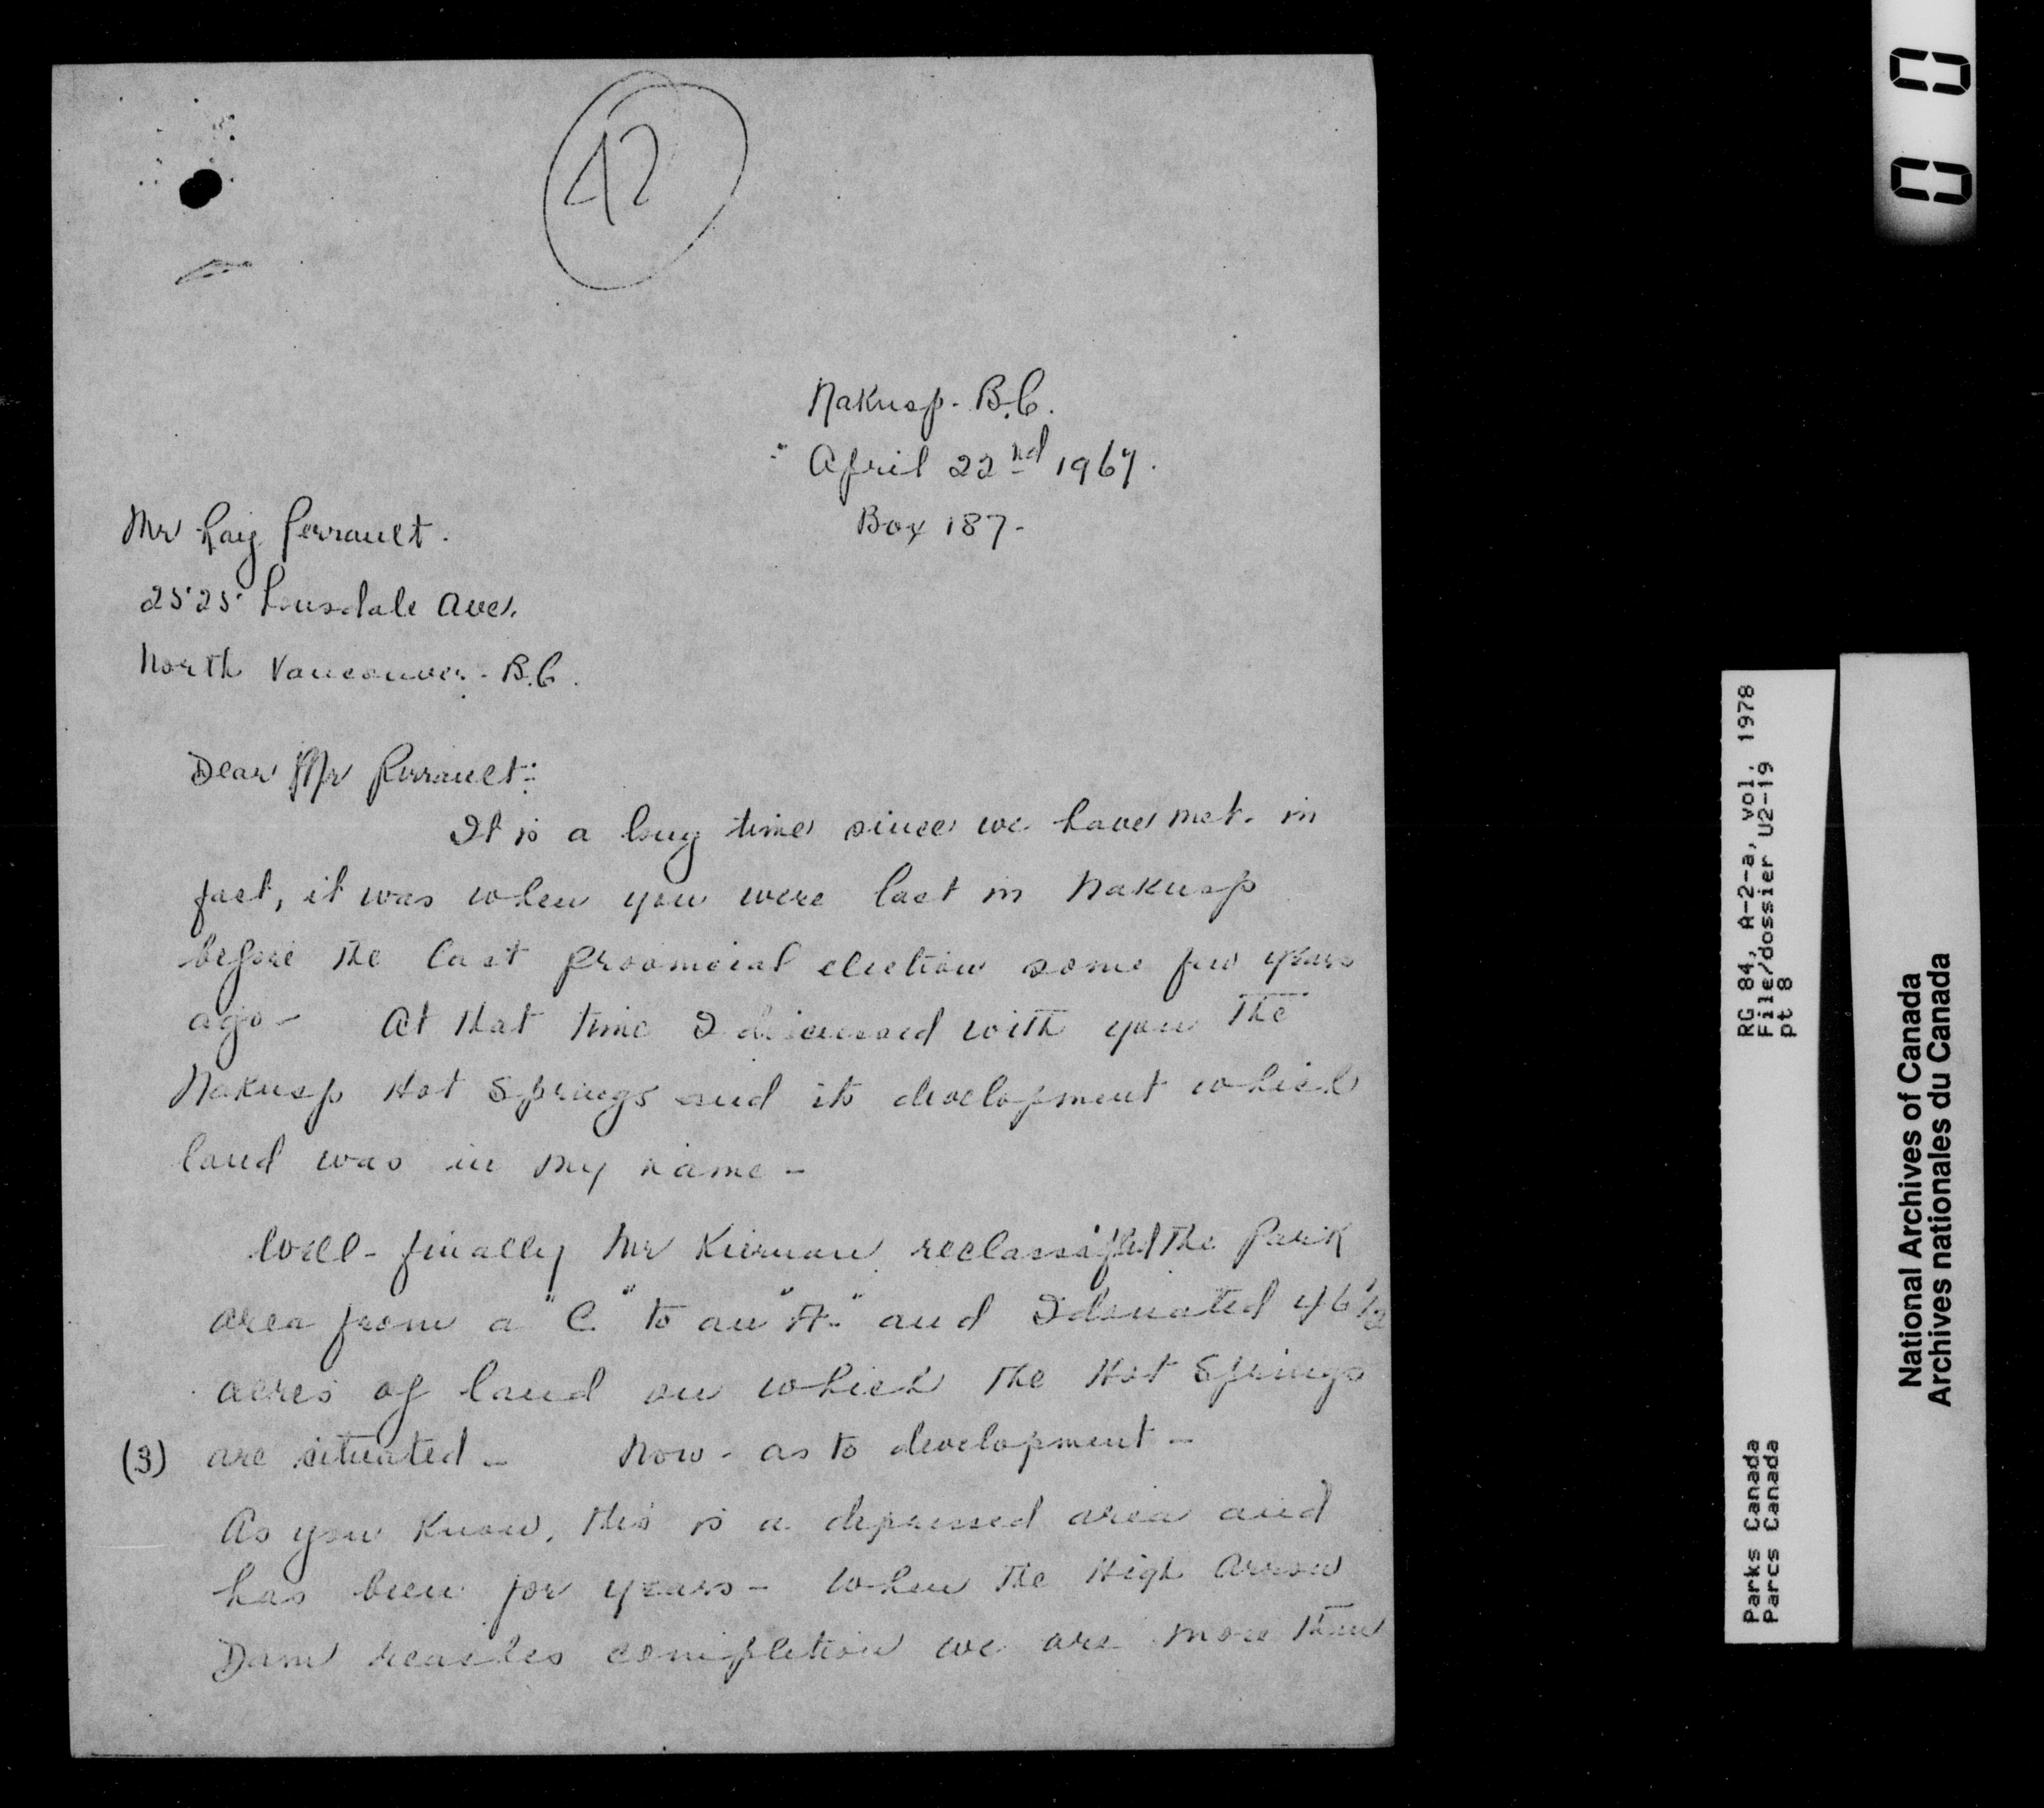 42
Nakusp. B.C.
April 22nd 1967.
Box 187-
Mr Perrault.
2525 Lonsdale Ave.
North Vancouver. B.C.
Dear Mr Perrault:
It is a long time since we have met. in
fact, it was when you were last in Nakusp
before the last Provincial election some few years
ago - At that time I discussed with you the
Nakusp Hot Springs and its development which
land was in my name -
Well - finally Mr Kiernan reclassified the Park
area from a "C" to an "A" and I donated 46 1/2
acres of land on which the Hot Springs
(3) are situated - Now - as to development -
As you know, this is a depressed area and
has been for years - When the High Arrow
Dam reaches completion we are more than
0 0
RG 84, A-2-a, vol. 1978
File/dossier U2-19
pt 8
Parks Canada
Parcs Canada
National Archives of Canada
Archives nationales du Canada